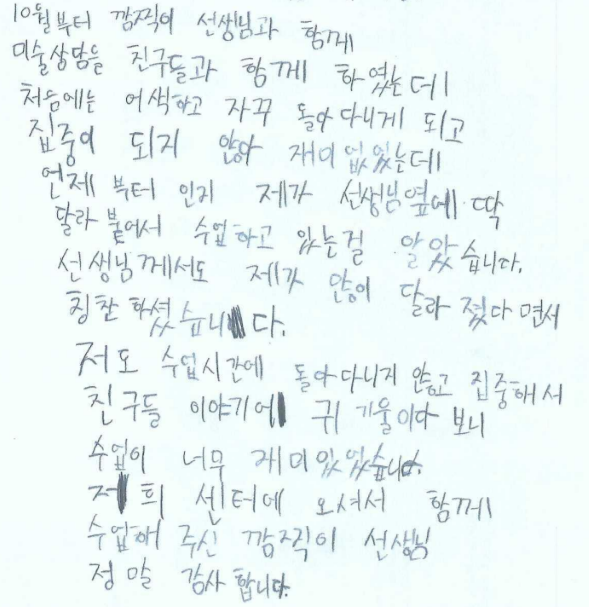 10월부터 깜찍이 선생님과 함께
미술상담을 친구들과 함께 하였는데
처음에는 어색하고 자꾸 돌아다니게 되고
집중이 되지 않아 재미없었는데
언제부터인지 제가 선생님옆에 딱
달라붙어서 수업하고 있는걸 알았습니다.
선생님께서도 제가 많이 달라졌다면서
칭찬하셨습니다.
저도 수업시간에 돌아다니지 않고 집중해서
친구들 이야기에 귀 기울이다 보니
수업이 너무 재미있었습니다.
저희 센터에 오셔서 함께
수업해 주신 깜직이 선생님
정말 감사합니다.